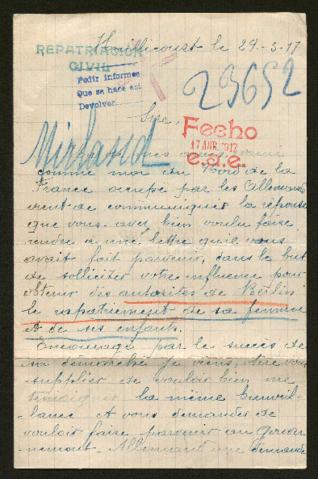 Houillecourt le 29-3-17
REPATRIACION
CIVIL
Pedir informes
Que se hace así
Devolver.
23652
Sire,
Fecho
17 ABR. 1917
e.a.e.
Mirland
comme moi du Nord de la
France occupé par les Allemands
vient de communiquer la réponse
que vous avez bien voulu faire
rendre à une lettre qu'il vous
avait fait parvenir, dans le but
de solliciter votre influence pour
obtenir des autorités de Berlin
le rapatriement de sa femme
et de ses enfants.
Encouragé par le succès de
sa démarche je viens, Sire, vous
supplier de vouloir bien me
témoigner la même bienveil-
lance et vous demander de
vouloir faire parvenir au gouver-
nement Allemand une demande